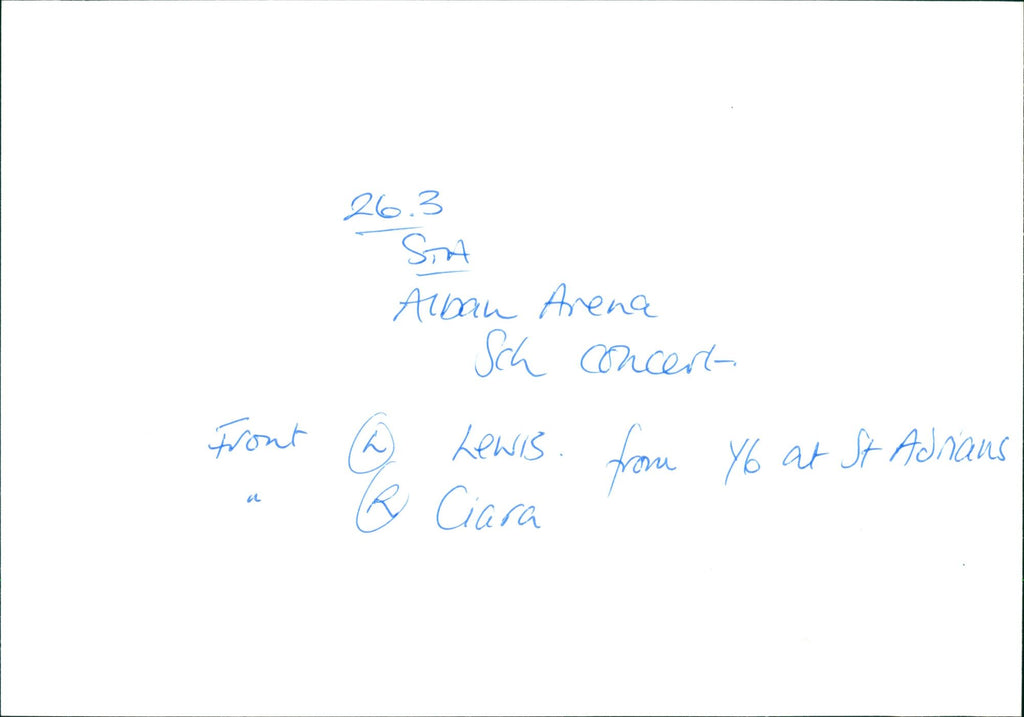 26.3
StA
Alban Arena
Sch concert.
Front L Lewis. from Y6 at St Adrians
" R Ciara